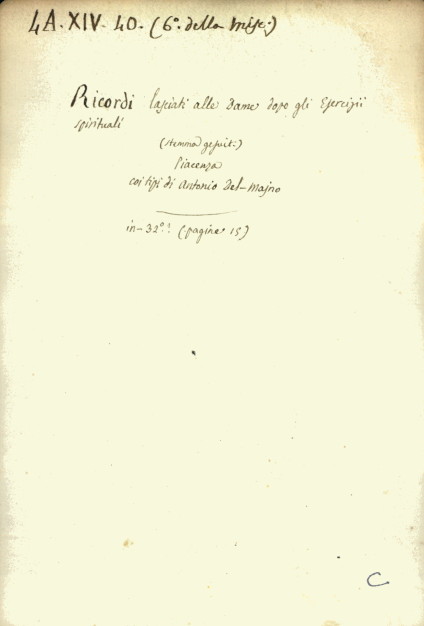 4A. XIV. 40. (6º. della Misc.)
Ricordi lasciati alle Dame dopo gli Esercizii
spirituali
(stemma gesuit.)
Piacenza
coi tipi di Antonio Del-Majno
in-32º.? (pagine 15)
C